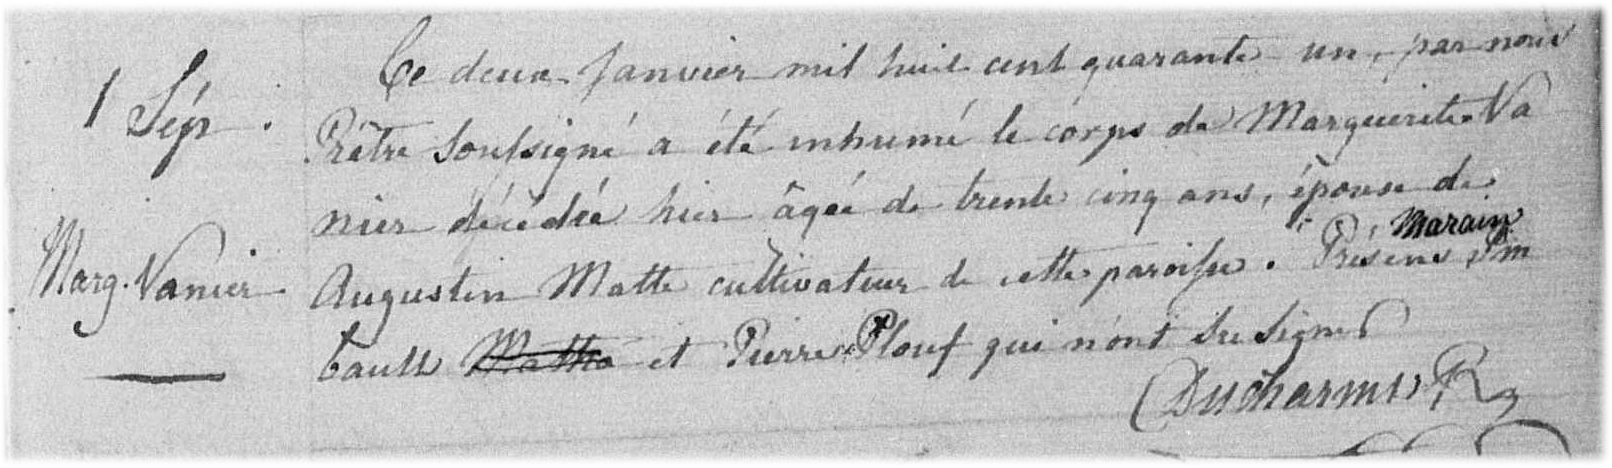 1 Sép.
Marg. Vanier
Ce deux Janvier mil huit cent quarante un, par nous
Prêtre Soussigné a été inhumé le corps de Marguerite Va
nier décédée hier âgée de trente cinq ans, épouse de
Augustin Matte cultivateur de cette paroisse. Présens
Marain
tault Matte et Pierre Plouf qui n'ont su signer
Ducharme Ptr